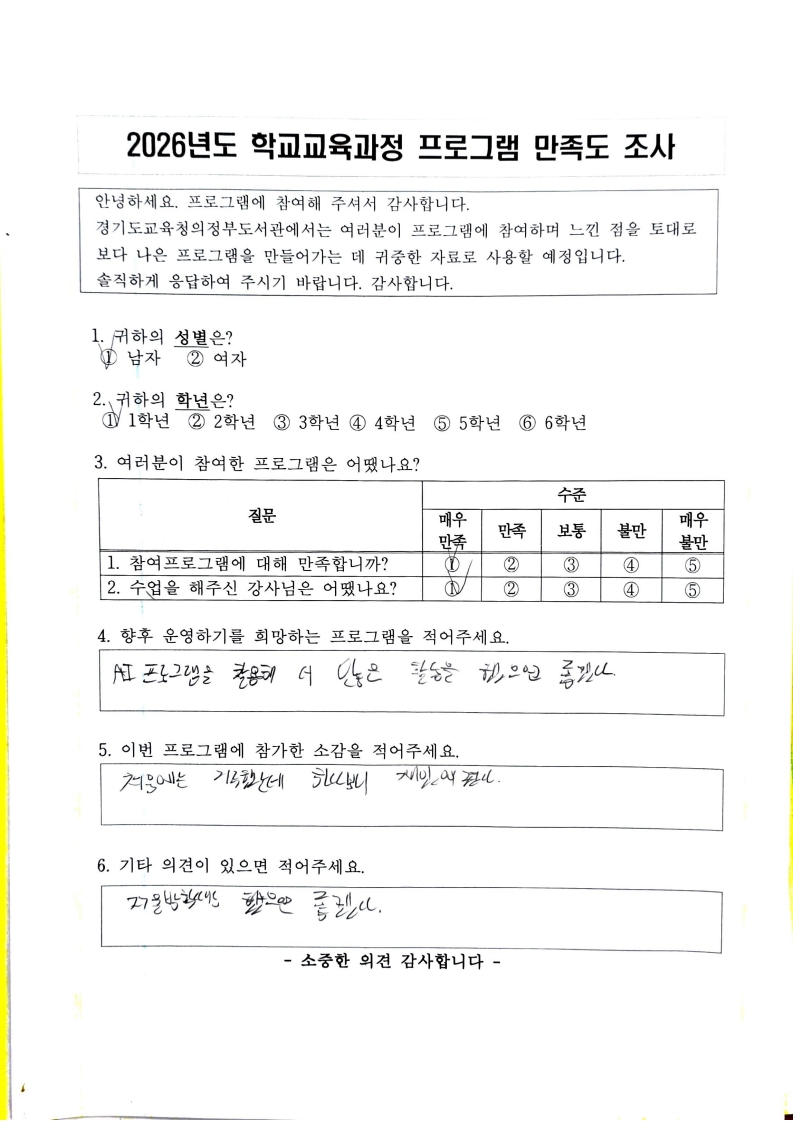 2026년도 학교교육과정 프로그램 만족도 조사
안녕하세요. 프로그램에 참여해 주셔서 감사합니다.
경기도교육청의정부도서관에서는 여러분이 프로그램에 참여하며 느낀 점을 토대로
보다 나은 프로그램을 만들어가는 데 귀중한 자료로 사용할 예정입니다.
솔직하게 응답하여 주시기 바랍니다. 감사합니다.
1. 귀하의 성별은?
① 남자 ② 여자
2. 귀하의 학년은?
① 1학년 ② 2학년 ③ 3학년 ④ 4학년 ⑤ 5학년 ⑥ 6학년
3. 여러분이 참여한 프로그램은 어땠나요?
질문
수준
매우 만족 만족 보통 불만 매우 불만
1. 참여프로그램에 대해 만족합니까? ① ② ③ ④ ⑤
2. 수업을 해주신 강사님은 어땠나요? ① ② ③ ④ ⑤
4. 향후 운영하기를 희망하는 프로그램을 적어주세요.
AI 프로그램을 활용해 더 많은 활동을 했으면 좋겠다.
5. 이번 프로그램에 참가한 소감을 적어주세요.
처음에는 하다보니
6. 기타 의견이 있으면 적어주세요.
겨울방학에도 했으면 좋겠다.
- 소중한 의견 감사합니다 -